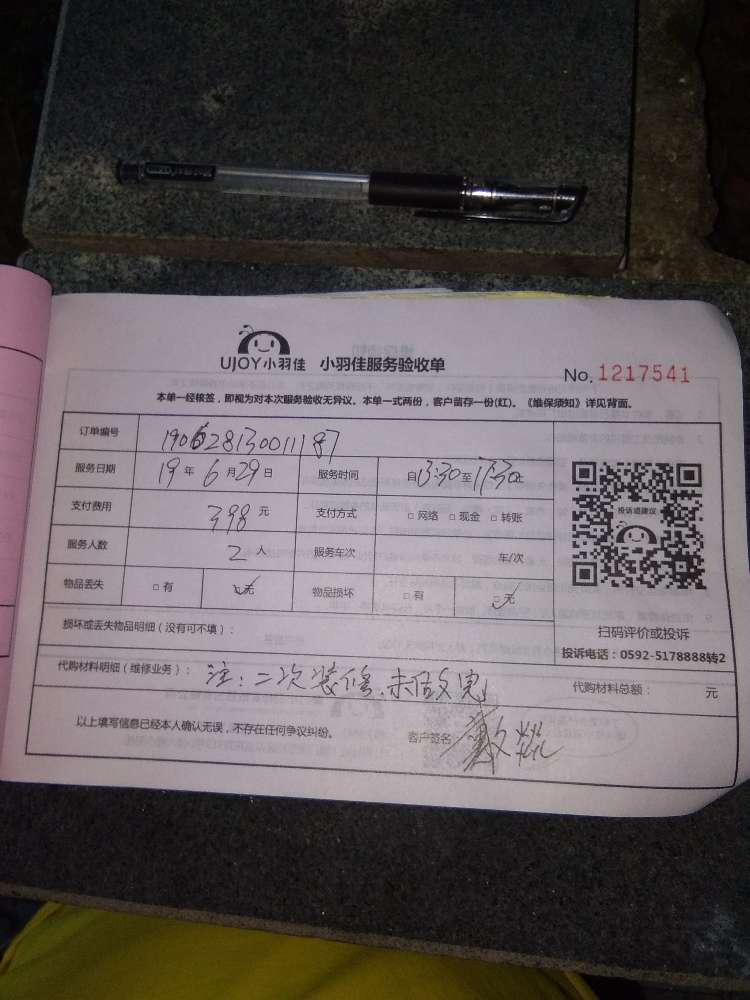 UJOY小羽佳 小羽佳服务验收单 No. 1217541
本单一经核签，即视为对本次服务验收无异议。本单一式两份，客户留存一份(红)。《维保须知》详见背面。
订单编号 19062813001187
服务日期 19 年 6 月 29 日 服务时间 自 13:30 至 17:30 止
支付费用 398 元 支付方式 □ 网络 □ 现金 □ 转账
投诉或建议
服务人数 2 人 服务车次 车/次
物品丢失 □ 有 ☑ 无 物品损坏 □ 有 ☑ 无
损坏或丢失物品明细（没有可不填）：
扫码评价或投诉
投诉电话：0592-5178888转2
代购材料明细（维修业务）： 注：二次装修，未做
代购材料总额： 元
以上填写信息已经本人确认无误，不存在任何争议纠纷。 客户签名：